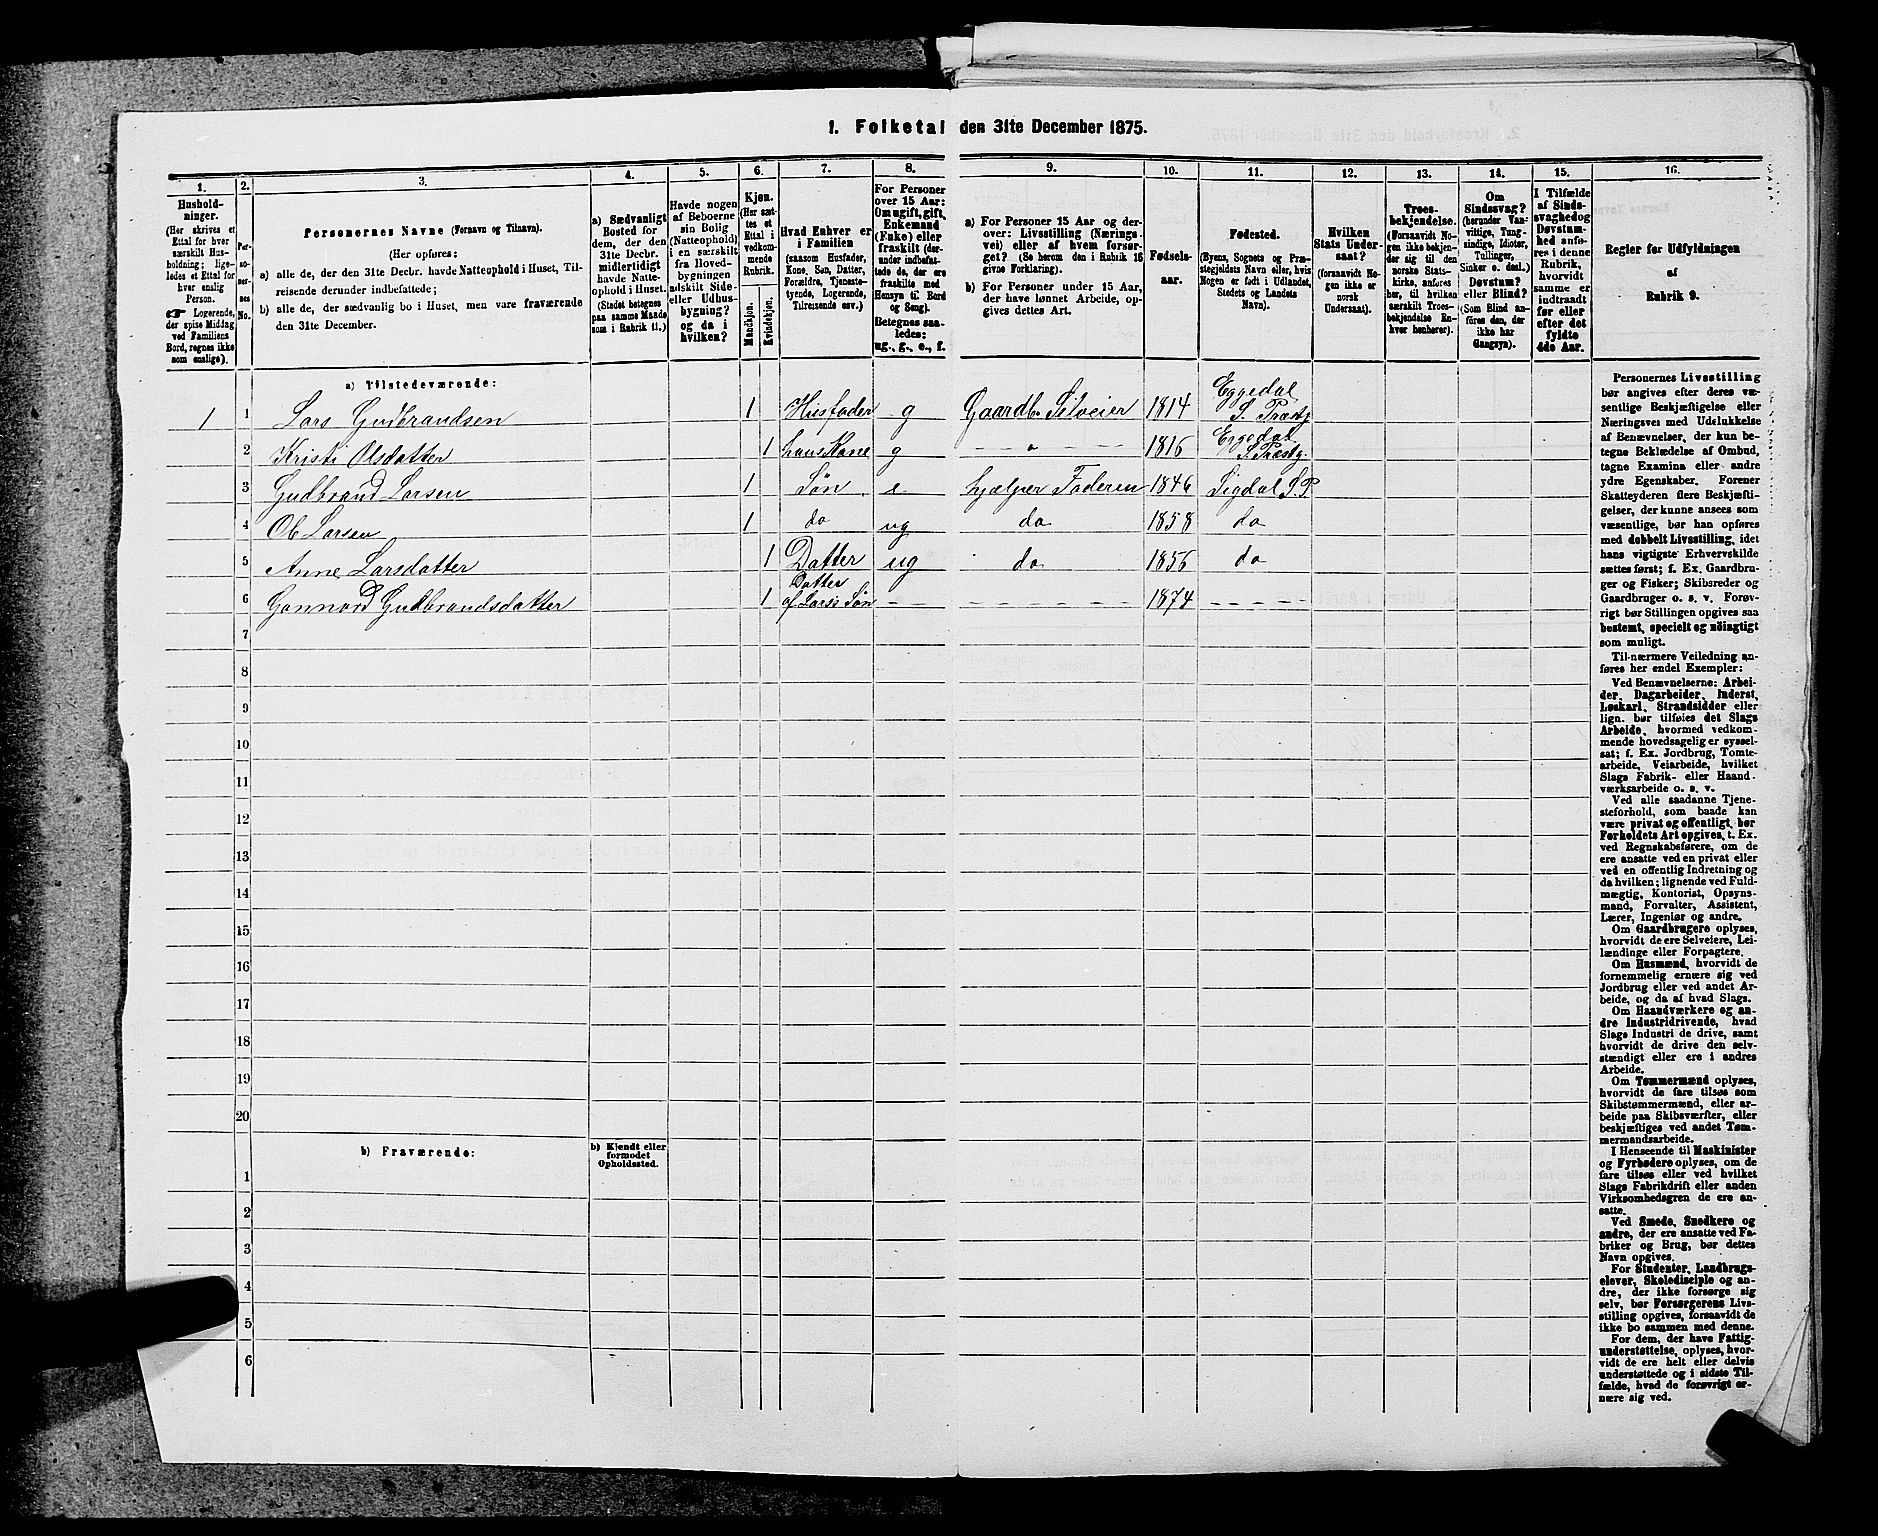 1. Folketal den 31te December 1875.
1.
Husholdninger.
(Her skrives et
Ettal for hver
særskilt Husholdning;
ligeledes et Ettal for
hver enslig
Person.
☛ Logerende,
der spise Middag
ved Familiens
Bord, regnes ikke
som enslige).
2.
Personernes
No.
3.
Personernes Navne (Fornavn og Tilnavn).
(Her opføres:
a) alle de, der den 31te Decbr. havde Natteophold i Huset, Tilreisende derunder indbefattede;
b) alle de, der sædvanlig bo i Huset, men vare fraværende
den 31te December.
4.
a) Sædvanligt
Bosted for
dem, der den
31te Decbr.
midlertidigt
havde Natteophold i Huset.
(Stedet betegnes
paa samme Maade
som i Rubrik 11.)
5.
Havde nogen
af Beboerne
sin Bolig
(Natteophold)
i en særskilt
fra Hovedbygningen
adskilt Side- eller Udhusbygning?
og da i
hvilken?
6.
Kjøn.
(Her sættes et
Ettal i
vedkommende
Rubrik.
Mandkjøn.
Kvindekjøn.
7.
Hvad Enhver er
i Familien
(saasom Husfader,
Kone, Søn, Datter,
Forældre, Tjenestetyende, Logerende,
Tilreisende osv.)
8.
For Personer
over 15 Aar:
Om ugift, gift,
Enkemand
(Enke) eller
fraskilt (derunder indbefattede de, der ere
fraskilte med
Hensyn til Bord
og Seng).
Betegnes saaledes:
ug., g., e., f.
9.
a) For Personer 15 Aar og derover: Livsstilling (Næringsvei) eller af hvem forsørget? (Se herom den i Rubrik 16
givne Forklaring).
b) For Personer under 15 Aar,
der have lønnet Arbeide, opgives dettes Art.
10.
Fødselsaar.
11.
Fødested.
(Byens, Sognets og Præstegjeldets Navn eller, hvis
Nogen er født i Udlandet,
Stedets og Landets
Navn).
12.
Hvilken
Stats Undersaat?
(foraavidt Nogen ikke er
norsk
Undersaat).
13.
Troesbekjendelse.
(Forsaavidt Nogen ikke bekjender sig til den
norske Statskirke, anføres
her, til hvilken
særskilt Troesbekjendelse Enhver henhører).
14.
Om
Sindssvag?
(herunder Vanvittige, Tungsindige, Idioter,
Tullinger,
Sinker o. desl.)
Døvstum?
eller Blind?
(Som Blind anføres den, der
ikke har
Gangsyn).
15.
I Tilfælde
af Sindssvaghed og
Døvstumhed anføres i denne
Rubrik,
hvorvidt
samme er
indtraadt
før eller
efter det
fyldte
4de Aar.
16.
Regler for Udfyldningen
af
Rubrik 9.
a) Tilstedeværende:
1 1 Lars Gudbrandsen 1 Husfader g Gaardb. Selveier 1814 Eggedal S. Præstgj
2 Kristi Olsdatter 1 hans Kone g — — " — — 1816 Eggedal S. Præstg.
3 Gudbrand Larsen 1 Søn e hjælper Faderen 1846 Sigdal S. P
4 Ole Larsen 1 do ug do 1858 do
5 Anne Larsdatter 1 Datter ug do 1856 do
6 Gunnord Gudbrandsdatter 1 Datter af Lars's Søn – – – – – – – 1874 – – – – –
7
8
9
10
11
12
13
14
15
16
17
18
19
20
b) Fraværende:
b) Kjendt eller
formodet
Opholdssted.
1
2
3
4
5
6
Personernes Livsstilling
bør angives efter deres væsentlige Beskjæftigelse eller
Næringsvei med Udelukkelse
af Benævnelser, der kun betegne Beklædelse af Ombud,
tagne Examina eller andre
ydre Egenskaber. Forener
Skatteyderen flere Beskjæftigelser, der kunne ansees som
væsentlige, bør han opføres
med dobbelt Livsstilling, idet
hans vigtigste Erhvervskilde
sættes først; f. Ex. Gaardbruger og Fisker; Skibsreder og
Gaardbruger o. s. v. Forøvrigt bør Stillingen opgives saa
bestemt, specielt og nöiagtigt
som muligt.
Til nærmere Veiledning anføres her endel Exempler:
Ved Benævnelserne: Arbeider, Dagarbeider, Inderst,
Løskarl, Strandsidder eller
lign. bør tilføies det Slags
Arbeide, hvormed vedkommende hovedsagelig er sysselsat; f. Ex. Jordbrug, Tomtearbeide, Veiarbeide, hvilket
Slags Fabrik- eller Haandværksarbeide o. s. v.
Ved alle saadanne Tjenesteforhold, som baade kan
være privat og offentligt, bør
Forholdets Art opgives, t. Ex.
ved Regnskabsførere, om de
ere ansatte ved en privat eller
ved en offentlig Indretning og
da hvilken; lignende ved Fuldmægtig, Kontorist, Opsynsmand, Forvalter, Assistent,
Lærer, Ingeniør og andre.
Om Gaardbrugere oplyses,
hvorvidt de ere Selveiere, Leilændinge eller Forpagtere.
Om Husmænd, hvorvidt de
fornemmelig ernære sig ved
Jordbrug eller ved andet Arbeide, og da af hvad Slags.
Om Haandværkere og andre Industridrivende, hvad
Slags Industri de drive, samt
hvorvidt de drive den selvstændigt eller ere i andres
Arbeide.
Om Tømmermænd oplyses,
hvorvidt de fare tilsøs som
Skibstømmermænd, eller arbeide paa Skibsværfter, eller
beskjæftiges ved andet Tømmermandsarbeide.
I Henseende til Maskinister
og Fyrbødere oplyses, om de
fare tilsøs eller ved hvilket
Slags Fabrikdrift eller anden
Virksomhedsgren de ere ansatte.
Ved Smede, Snedkere og
andre, der ere ansatte ved Fabriker og Brug, bør dettes
Navn opgives.
For Studenter, Landbrugselever, Skoledisciple og andre, der ikke forsørge sig
selv, bør Forsørgerens Livsstilling opgives, forsaavidt de
ikke bo sammen med denne.
For dem, der have Fattigunderstøttelse, oplyses, hvorvidt de ere helt eller delvis
understøttede og i sidste Tilfælde, hvad de forøvrigt ernære sig ved.